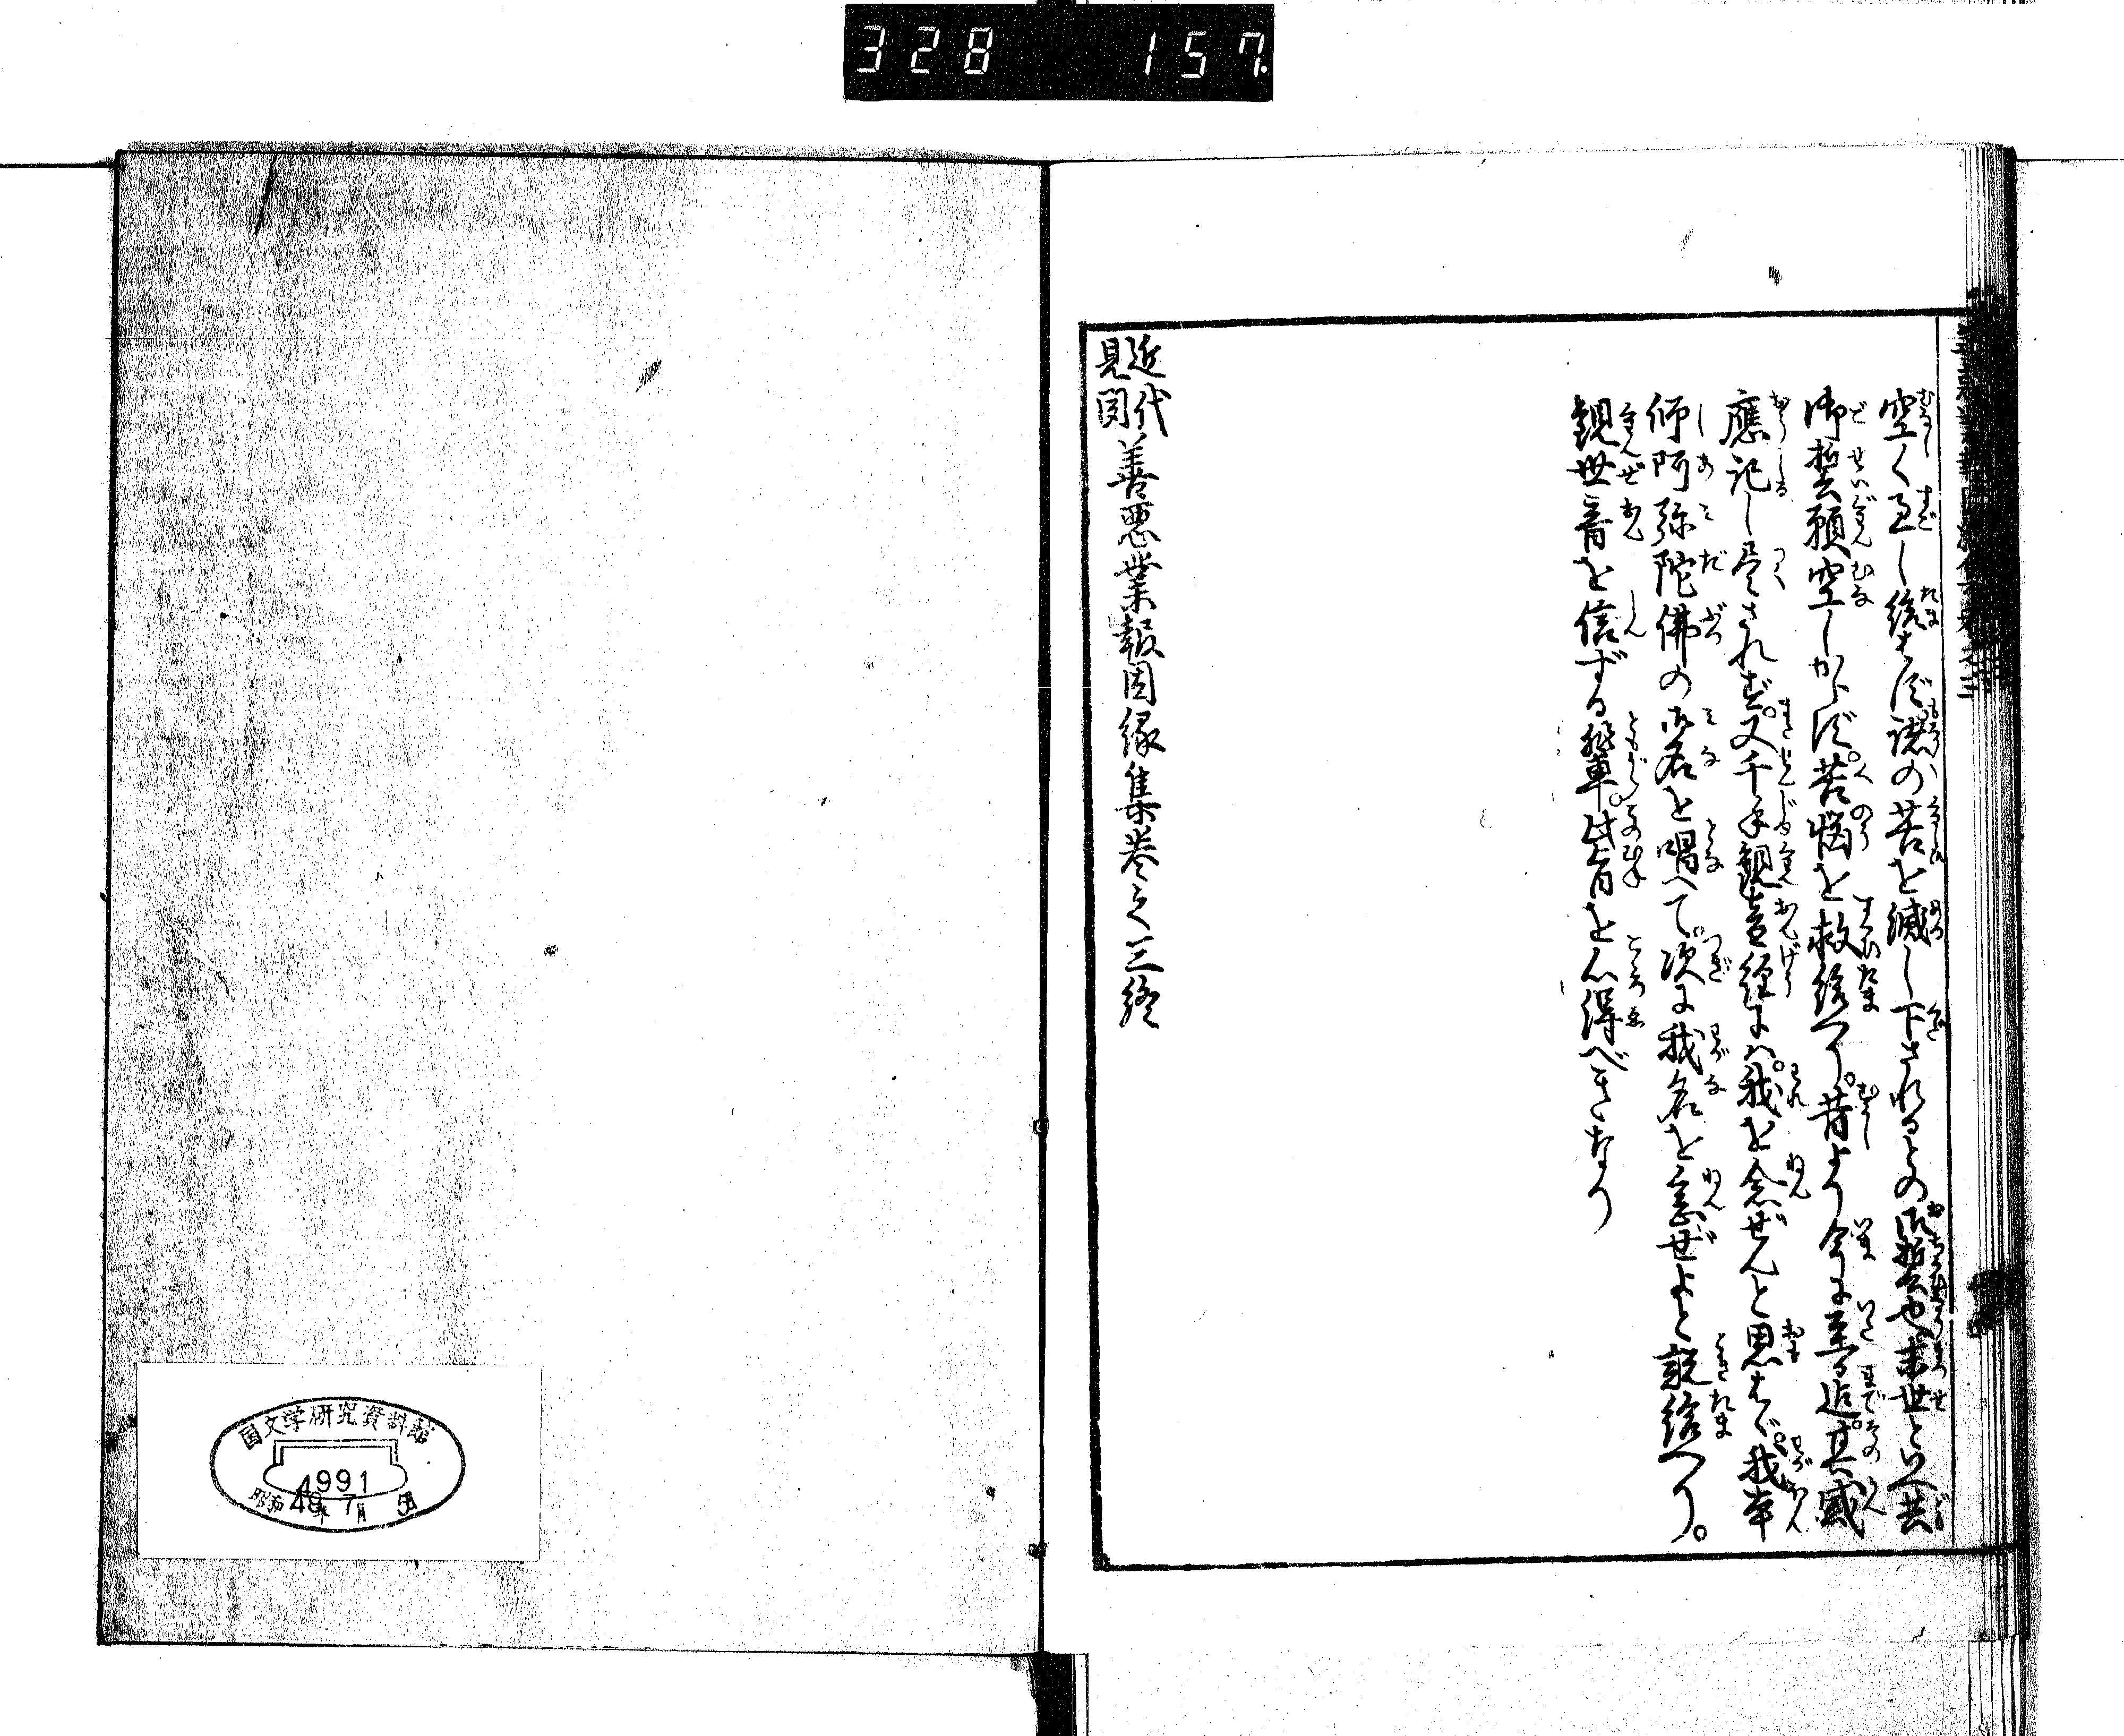 328 157
空く過し給はず諸の苦を滅し下されるとの御誓也末世といへ共
御誓願空しからず。苦悩を救給へり。昔より今に至る迄。其威
應記し尽されず。又千手観音経には。我を念ぜんと思はゞ。我本
師阿弥陀佛の御名を唱へて。次に我名を念ぜよと説給へり。
観世音を信ずる輩。此旨を心得べきなり
近代見聞善悪業報因縁集巻之三終
国文学研究資料館
4991
昭和48年7月5日